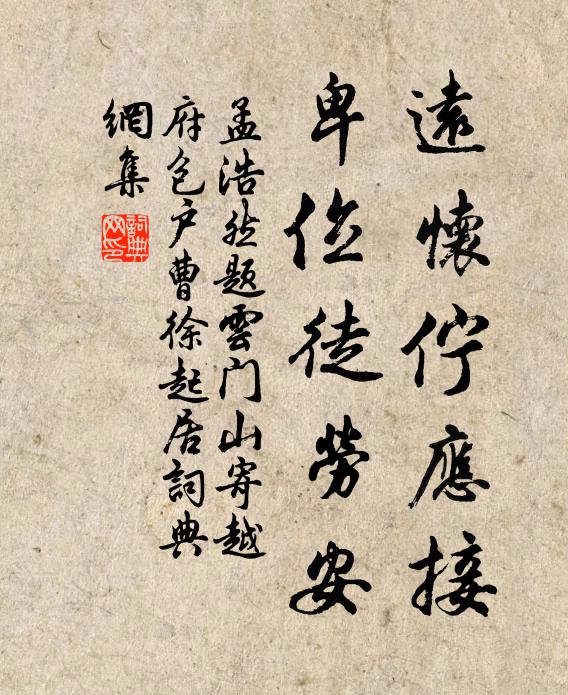 遠懷佇應接
卑位徒勞安
孟浩然題雲门山寄越
府包户曹徐起居詞典
網集
詞典
网印